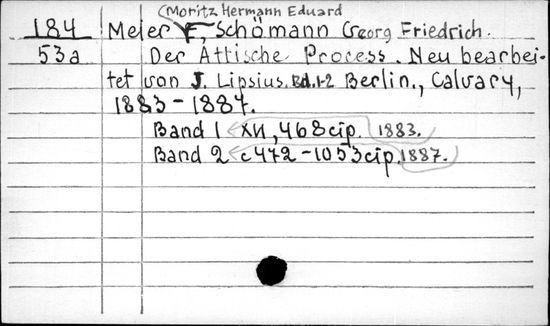 (Moritz Hermann Eduard
184 Meier F, Schömann Georg Friedrich.
53a Der Attische Process. Neu bearbei-
tet von J. Lipsius. Bd.1-2 Berlin., Calvary,
1883-1887.
Band 1 XII, 468 cip. 1883.
Band 2 c 472-1053 cip. 1887.